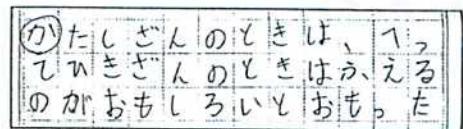 かたしざんのときは、へっ
てひきざんのときはふ、える
のがおもしろいとおもった